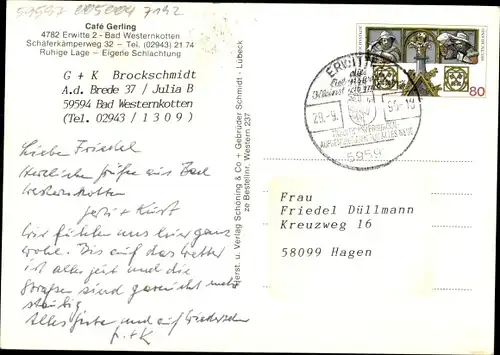 Café Gerling
4782 Erwitte 2 - Bad Westernkotten
Schäferkämperweg 32 – Tel. (02943) 21 74
Ruhige Lage – Eigene Schlachtung
G + K Brockschmidt
A.d. Brede 37 / Julia B
59594 Bad Westernkotten
(Tel. 02943 / 1309)
Liebe Friedel
Herzliche Grüße aus Bad
Westernkotten
Gerti + Kurt
Wir fühlen uns hier ganz
wohl. Bis auf das Wetter
ist alles gut und die
Straßen sind gar nicht mehr
staubig
Alles Gute und auf Wiedersehn
G. + K
Herst. u. Verlag Schöning & Co + Gebrüder Schmidt · Lübeck
ze Bestellnr. Western 237
DEUTSCHE BUNDESPOST
DEUTSCHLAND
80
ERWITTE
die
29.-9.
5959
Frau
Friedel Düllmann
Kreuzweg 16
58099 Hagen